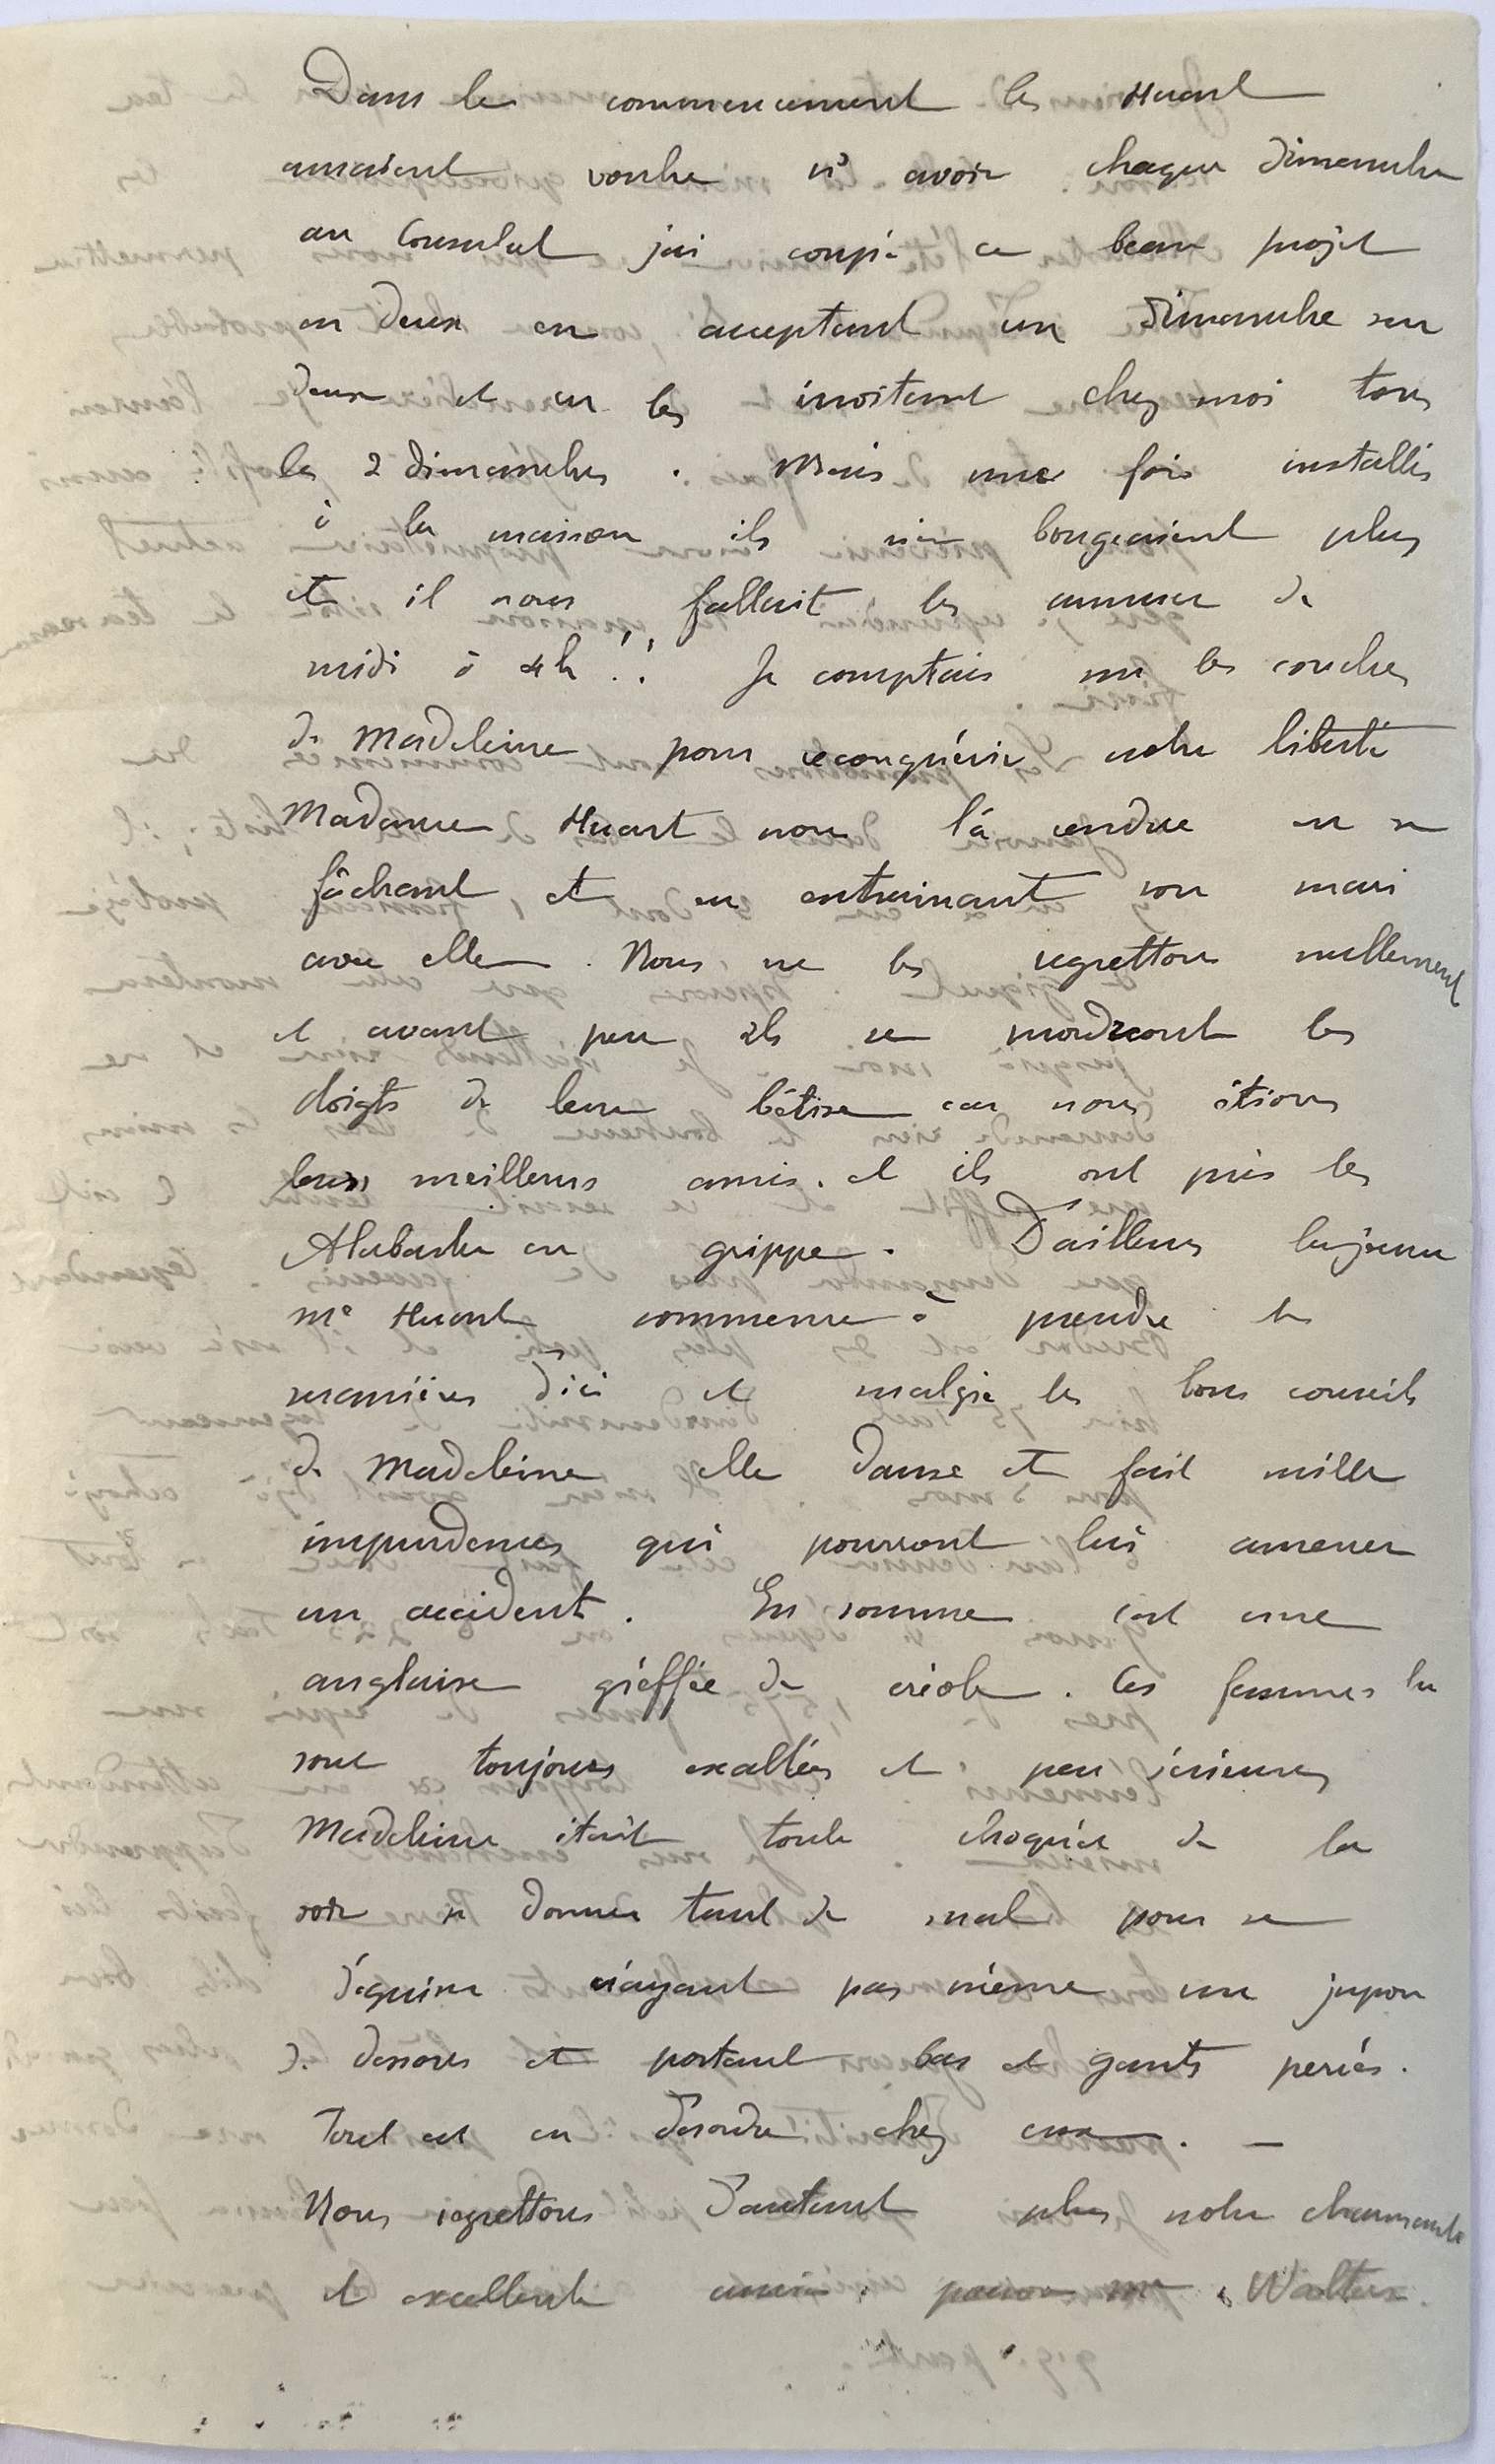 Dans le commencement les Huart
auraient voulu n[s] avoir chaque Dimanche
au Consulat j'ai coupé ce beau projet
en deux en acceptant un Dimanche sur
deux et en les invitant chez moi tous
les 2 dimanches. Mais une fois installés
à la maison ils ne bougeaient plus
et il nous fallait les amuser de
midi à 4h !! Je comptais sur les couches
de Madeleine pour reconquérir notre liberté
Madame Huart nous l'a rendue en se
fâchant et en entrainant son mari
avec elle. Nous ne les regrettons nullement
et avant peu ils se mordront les
doigts de leur bêtise car nous étions
leurs meilleurs amis. et ils ont pris les
en grippe. D'ailleurs la jeune
Me Huart commence à prendre les
manières d'ici et malgré les bons conseils
de Madeleine elle danse et fait mille
imprudences qui pourront lui amener
un accident. En somme c'est une
anglaise gréffée de créole. Ces femmes la
sont toujours exaltées et peu sérieuses
Madeleine était toute choquée de la
voir se donner tant de mal pour se
déguiser n'ayant pas même un jupon
de dessous et portant bas et gants percés.
Tout est en désordre chez eux. —
Nous regrettons d'autant plus notre charmante
et excellente amie. pauvre Me Walter.